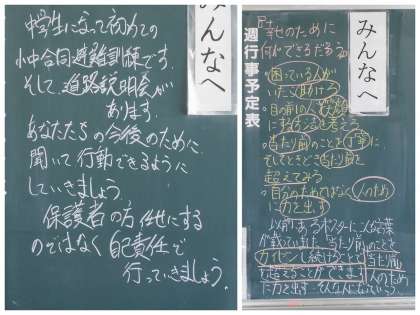 みんなへ
中学生になって初めての
小中合同避難訓練です。
そして、進路説明会が
あります。
あなたたちの今後のために
聞いて行動できるように
していきましょう。
保護者の方任せにする
のではなく自己責任で
行っていきましょう。
みんなへ
週行事予定表
幸せのために
何ができるだろう。
・困っている人が
いたら助ける
・目の前の人を
する方法を考える
・当たり前のことを丁寧に
そしてときどき当たり前を
超えてみる
・自分のためではなく人のため
に力を出す
以前あるポスターにこんな言葉
が載っていました。当たり前のことを
カイゼンし続けることで当たり前
を超えることができます。人のため
に力を出す そんな人になっていこう。